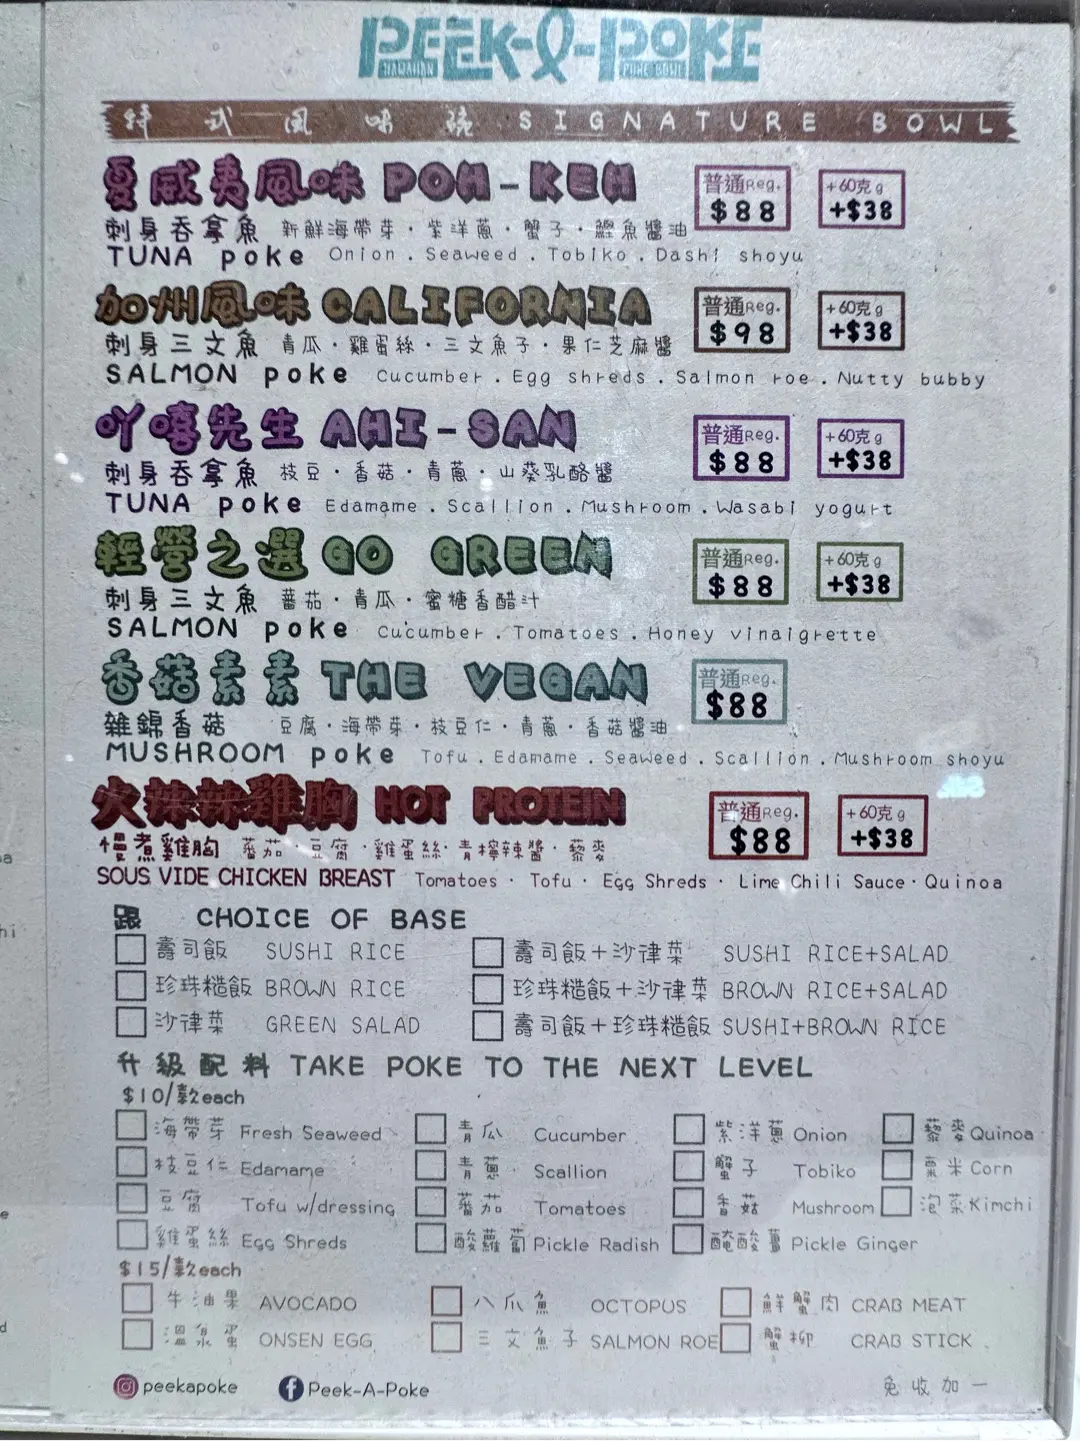 PEEK-A-POKE
HAWAIIAN POKE BOWL
特式風味碗 SIGNATURE BOWL
夏威夷風味 POH-KEH 普通Reg. $88 +60克g +$38
刺身吞拿魚 新鮮海帶芽·紫洋蔥·蟹子·鰹魚醬油
TUNA poke Onion . Seaweed . Tobiko . Dashi shoyu
加州風味 CALIFORNIA 普通Reg. $98 +60克g +$38
刺身三文魚 青瓜·雞蛋絲·三文魚子·果仁芝麻醬
SALMON poke Cucumber . Egg shreds . Salmon roe . Nutty bubby
吖嘻先生 AHI-SAN 普通Reg. $88 +60克g +$38
刺身吞拿魚 枝豆·香菇·青蔥·山葵乳酪醬
TUNA poke Edamame . Scallion . Mushroom . Wasabi yogurt
輕營之選 GO GREEN 普通Reg. $88 +60克g +$38
刺身三文魚 蕃茄·青瓜·蜜糖香醋汁
SALMON poke Cucumber . Tomatoes . Honey vinaigrette
香菇素素 THE VEGAN 普通Reg. $88
雜錦香菇 豆腐·海帶芽·枝豆仁·青蔥·香菇醬油
MUSHROOM poke Tofu . Edamame . Seaweed . Scallion . Mushroom shoyu
火辣辣雞胸 HOT PROTEIN 普通Reg. $88 +60克g +$38
慢煮雞胸 蕃茄·豆腐·雞蛋絲·青檸辣醬·藜麥
SOUS VIDE CHICKEN BREAST Tomatoes · Tofu · Egg Shreds · Lime Chili Sauce · Quinoa
跟 CHOICE OF BASE
壽司飯 SUSHI RICE 壽司飯+沙律菜 SUSHI RICE+SALAD
珍珠糙飯 BROWN RICE 珍珠糙飯+沙律菜 BROWN RICE+SALAD
沙律菜 GREEN SALAD 壽司飯+珍珠糙飯 SUSHI+BROWN RICE
升級配料 TAKE POKE TO THE NEXT LEVEL
$10/款each
海帶芽 Fresh Seaweed 青瓜 Cucumber 紫洋蔥 Onion 藜麥 Quinoa
枝豆仁 Edamame 青蔥 Scallion 蟹子 Tobiko 粟米 Corn
豆腐 Tofu w/dressing 蕃茄 Tomatoes 香菇 Mushroom 泡菜 Kimchi
雞蛋絲 Egg Shreds 酸蘿蔔 Pickle Radish 醃酸薑 Pickle Ginger
$15/款each
牛油果 AVOCADO 八爪魚 OCTOPUS 鮮蟹肉 CRAB MEAT
溫泉蛋 ONSEN EGG 三文魚子 SALMON ROE 蟹柳 CRAB STICK
peekapoke Peek-A-Poke 免收加一